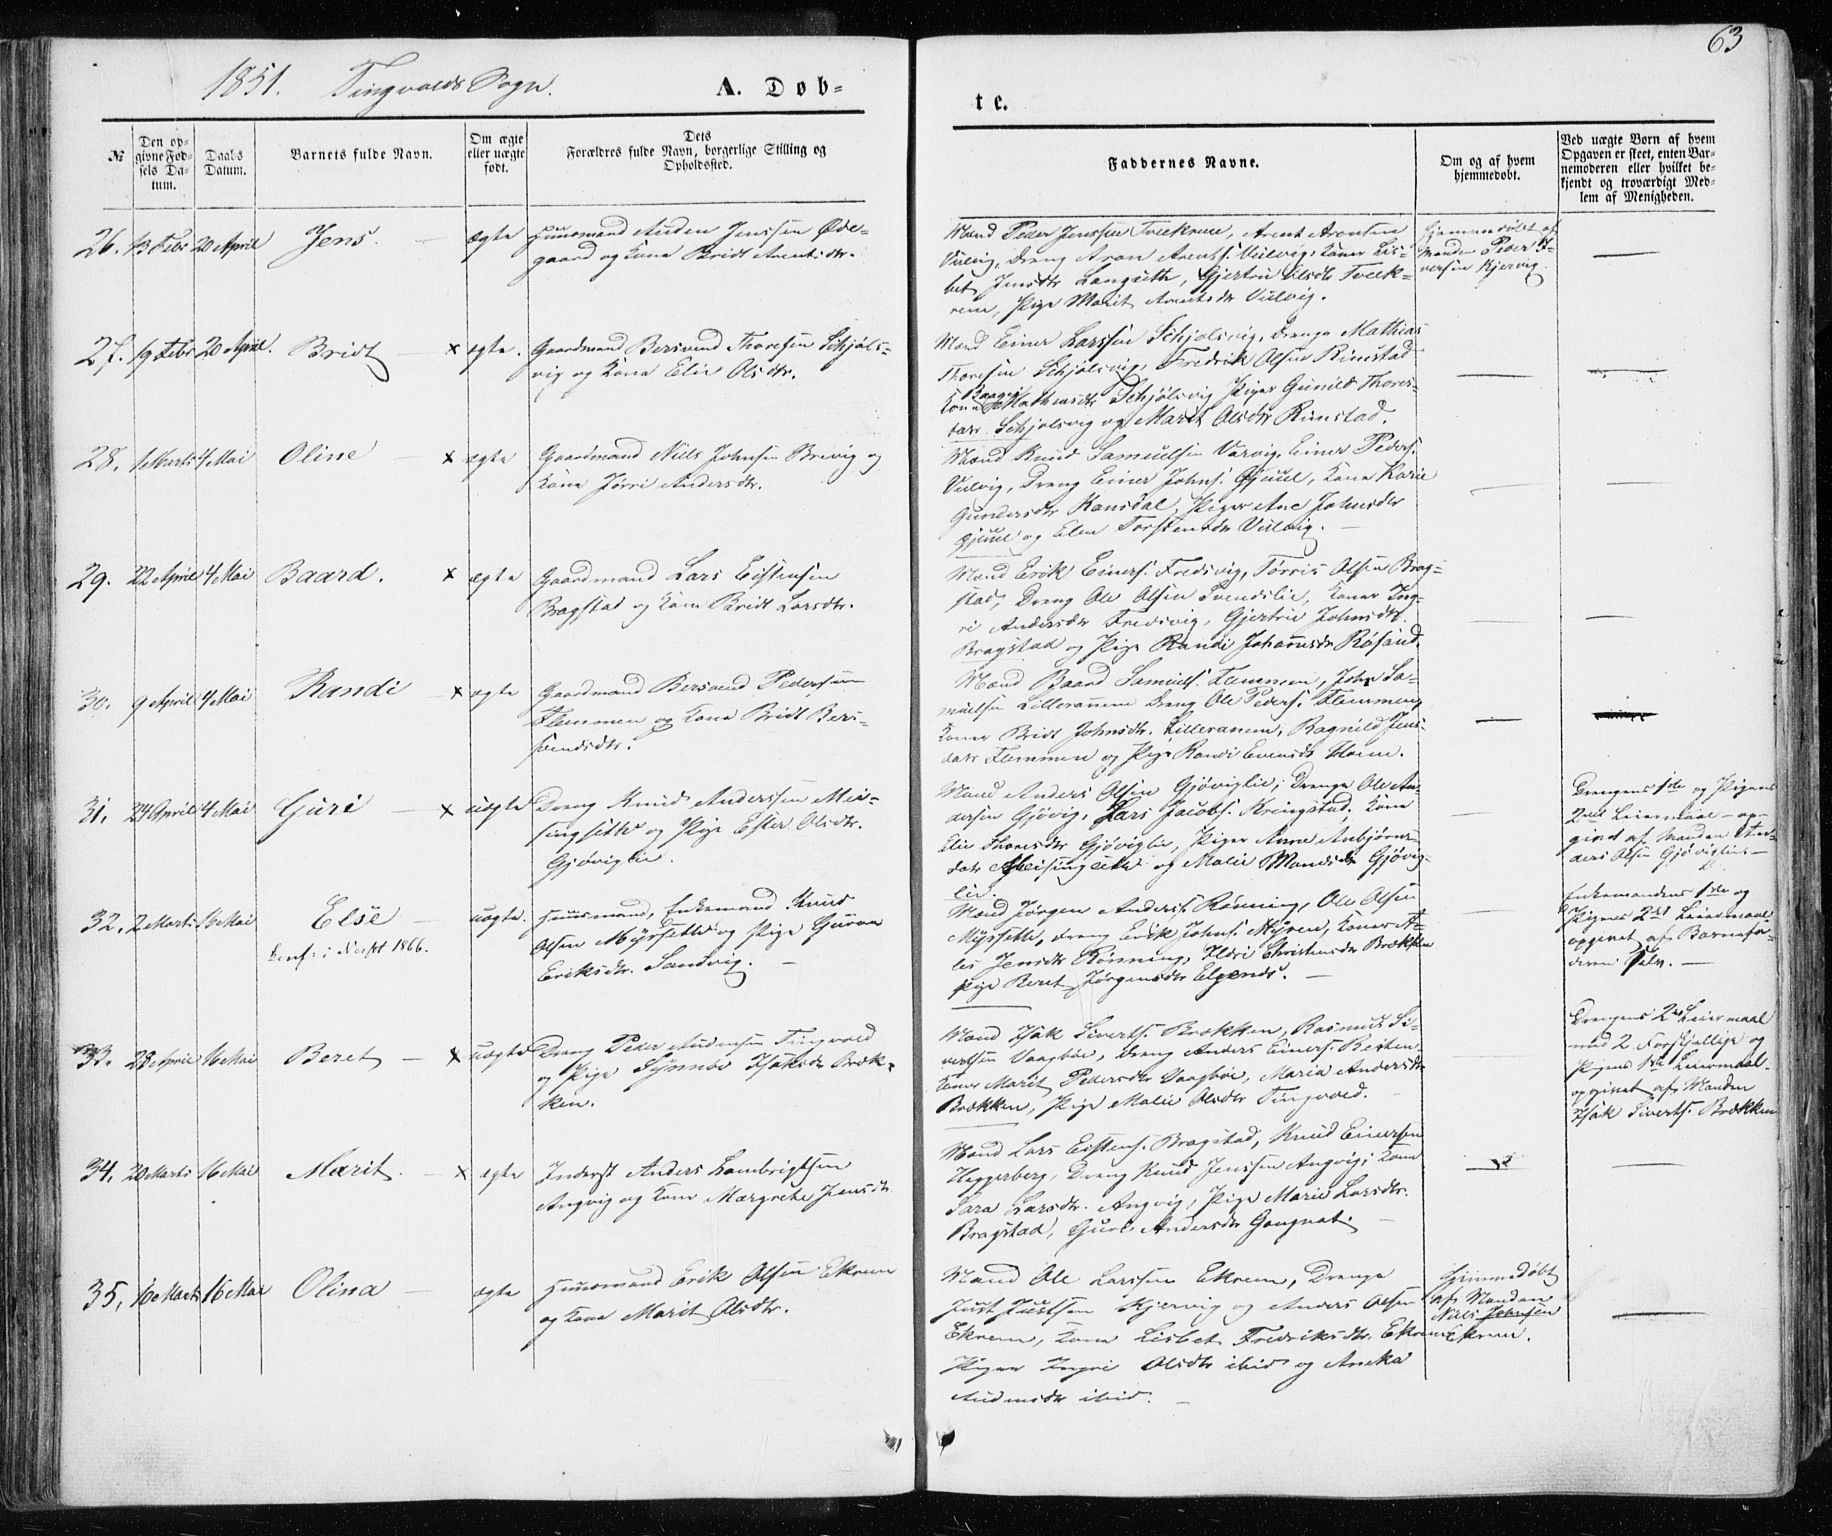 63
1851. Tingvolds Sogn. A. Døb-
te.
№
Den op-
givne Fød-
sels Da-
tum.
Daabs
Datum.
Barnets fulde Navn.
Om ægte
eller uægte
født.
Dets
Forældres fulde Navn, borgerlige Stilling og
Opholdssted.
Faddernes Navne.
Om og af hvem
hjemmedøbt.
Ved uægte Børn af hvem
Opgaven er skeet, enten Bar-
nemoderen eller hvilket be-
kjendt og troværdigt Med-
lem af Menigheden.
26. 13 Febr 20 April Jens. — ægte Huusmand Auden Jenssen Øde-
gaard og Kone Bridt Arentsdtr.
Mænd Peder Jenssen Tveekrem, Arent Aronsen
Vulvig, Dreng Aron Arents. Vulvig, Koner Lis-
bet Jensdtr Langsætte, Gjertru Olsdtr Tveek-
rem, Pige Marit Arentsdtr Vulvig.
Hjemmedøbt af
Manden Peder I-
versen Kjervig.
27. 19 Febr 20 April. Bridt × ægte. Gaardmand Bersvend Thoresen Schjøls-
vig og Kone Elie Olsdtr.
Mænd Einer Larssen Schjølsvig, Drenge Mathias
Thoresen Schjølsvig, Fredrik Olsen Rimstad
Kone Mathiasdtr Schjølsvig Piger Gunild Thores-
datr. Schjølsvig og Marit Olsdtr Rimstad.
28. 1 Marts 4 Mai Oline — × ægte Gaardmand Niels Johnsen Brevig og
Kone Jørri Andersdtr.
Mænd Knud Samuelsen Vaavig, Einer Peders.
Vulvig, Dreng Einer Johns. Gjuul, Kone Karie
Gundersdtr Kansdal, Piger Ane Johnsdtr
Gjuul og Elen Torstensdtr Vulvig. —
29. 22 April 4 Mai Baard. × ægte Gaardmand Lars Eistensen
Bragstad og Kone Bridt Larsdtr.
Mænd Erik Einers. Fredsvig, Tørris Olsen Brag-
stad, Dreng Ole Olsen Svendslie, Koner Ing-
ri Andersdtr Fredsvig, Gjertrue Johnsdtr.
Bragstad og Pige Randi Johannsdtr Røsand.
30. 9 April 4 Mai Randi — × ægte Gaardmand Bersvend Pedersen
Flemmen og Kone Bridt Bers-
vendsdtr.
Mænd Baard Samuels. Flemmen, John Sa-
muelsen Lilleranem Dreng Ole Peders. Flemmen,
Koner Bridt Johnsdtr. Lilleranem, Ragnild Jens-
datr Flemmen og Pige Randi Evensdtr Hanem.
31. 24 April 4 Mai Guri — × uægte Dreng Knud Anderssen Mei-
singsetter og Pige Ester Olsdtr.
Gjøviglie.
Mænd Anders Olsen Gjøviglie, Drenge Ole An-
dersen Gjøvig, Lars Jacobs. Kringstad, Kone
Elie Thoresdtr Gjøviglie, Piger Anne Anbjørns-
datr Meisingsetter og Malie Monsdtr Gjøvig-
lie.
Drengens 1ste og Pigens
2det Leiermaal — op-
givet af Manden An-
ders Olsen Gjøviglie. —
32. 2 Marts 16 Mai Else — uægte. Huusmand, Enkemand Knud
Olsen Myrsette og Pige Guroe
Eriksdtr. Sandvig. —
Konf: i 1866.
Mænd Jørgen Anders. Rønning, Ole Olsen
Myrsette, Dreng Erik Johns. Myren, Koner A-
lis Jensdtr Rønning, Ildri Christensdtr Brækken
Pige Beret Jørgensdtr Elgenes. —
Enkemandens 1ste og
Pigens 2det Leiermaal
opgivet af Barnefa-
deren selv. —
33. 28 April 16 Mai Beret — × uægte Dreng Peder Audensen Tingvold
og Pige Synnøv Isaksdtr Bræk-
ken.
Mænd Isak Siverts. Brækken, Rasmus Si-
vertsen Vaagbøe, Dreng Anders Einers. Besten
Koner Marit Pedersdtr Vaagbøe, Maria Andersdtr
Brækken, Pige Malie Olsdtr Tingvold.
Drengens 2det Leiermaal
med 2 Forskjellige og
Pigens 1ste Leiermaal
opgivet af Manden
Isak Siverts. Brækken
34. 20 Marts 16 Mai Marit. — × ægte Inderst Anders Lambrigtsen
Angvig og Kone Margrete Jensdtr
Mænd Lars Eistens. Bragstad, Knud Einersen
Heggerberg, Dreng Knud Jenssen Angvig, Kone
Sara Larsdtr. Angvig, Pige Marie Larsdtr.
Bragstad, Guri Andersdtr Gangnat. —
35. 16 Marts 16 Mai Olina — ægte Huusmand Erik Olsen Ekrem
og Kone Marit Olsdtr.
Mænd Ole Larssen Ekrem, Drenge
Just Justsen Kjervig og Anders Olsen
Ekrem, Kone Lisbet Fredriksdtr. Ekrem
Piger Ingri Olsdtr ibid og Aneka
Audensdtr ibid. —
Hjemmedøbt
af Manden
Niels Johnsen
Ekrem.